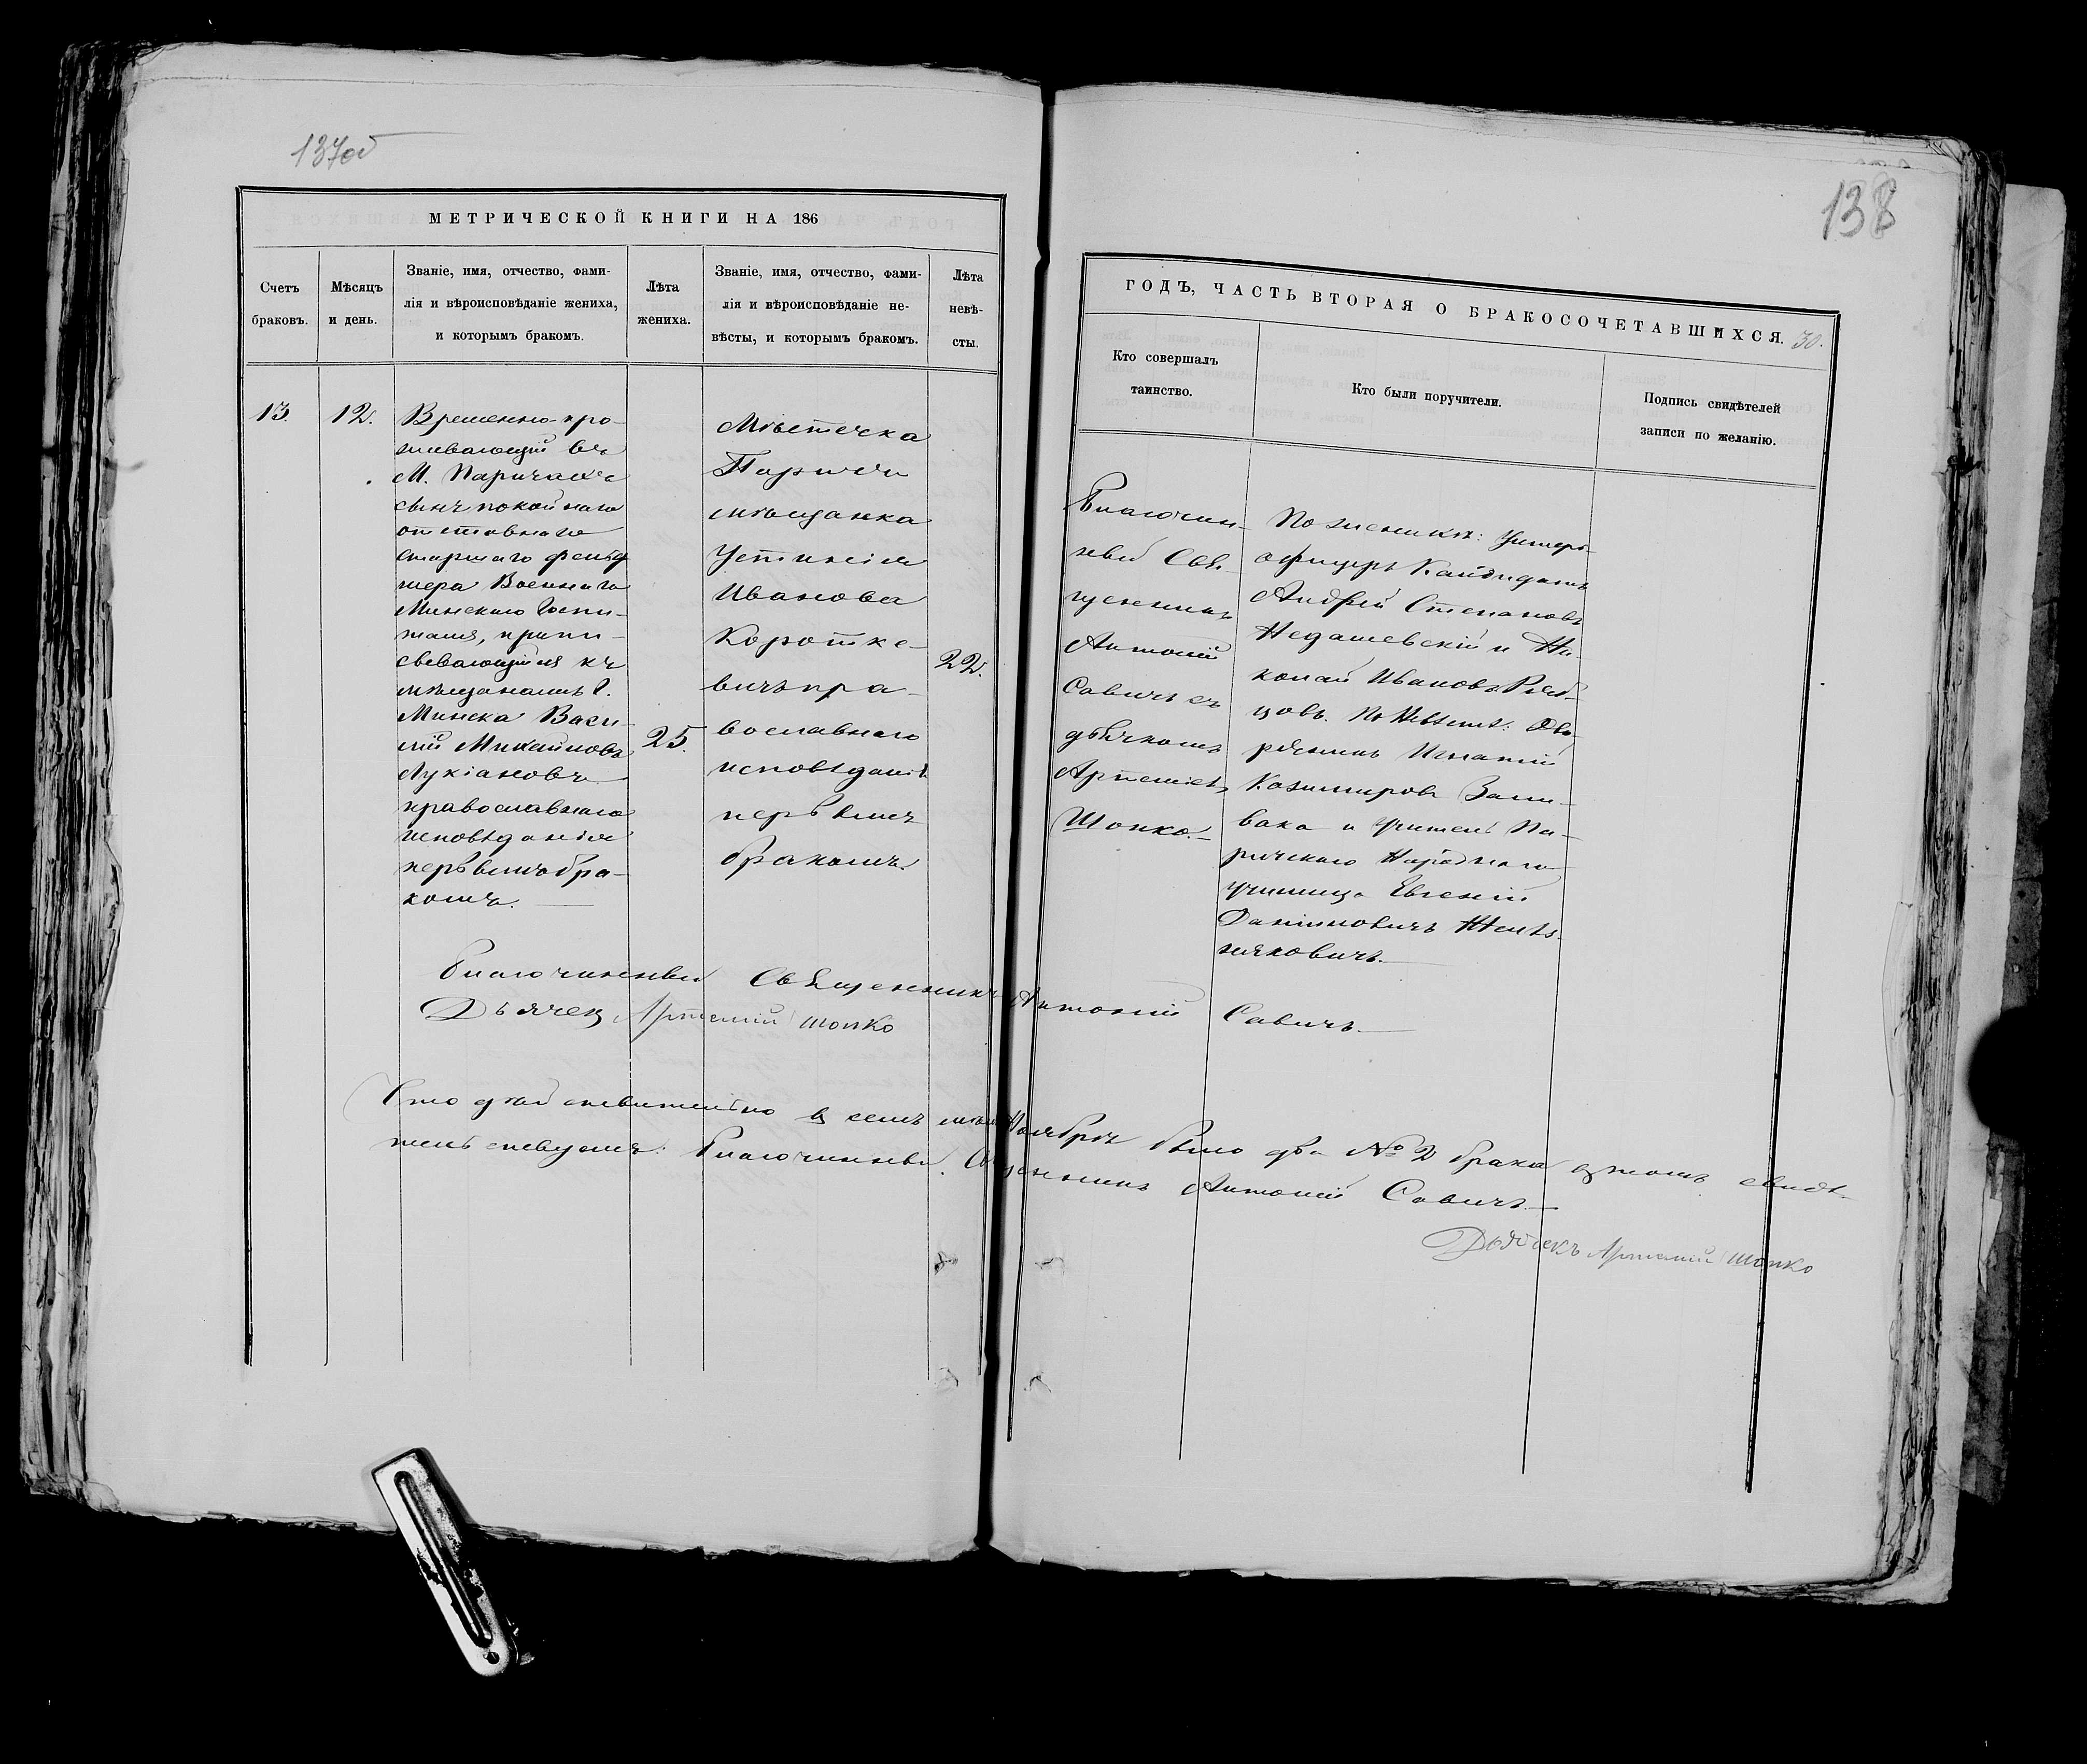 137об
МЕТРИЧЕСКОЙ КНИГИ НА 186
Счетъ
браковъ.
Мѣсяцъ
и день.
Званіе, имя, отчество, фами-
лія и вѣроисповѣданіе жениха,
и которымъ бракомъ.
Лѣта
жениха.
Званіе, имя, отчество, фами-
лія и вѣроисповѣданіе не-
вѣсты, и которымъ бракомъ.
Лѣта
невѣ-
сты.
13.
12.
Временно про-
живающій въ
М. Паричахъ
сынъ покойнаго
отставнаго
старшаго фельд
шера Военнаго
Минскаго Госпи-
таля, припи-
сывающійся къ
мѣщанамъ Г.
Минска Васи-
лій Михайловъ
Лукіановъ
православнаго
исповѣданія
первымъ бра-
комъ.
25.
Мѣстечка
Паричи
мѣщанка
Устинія
Иванова
Коротке-
вичъ пра-
вославнаго
исповѣданія
первымъ
бракомъ.
22.
138
ГОДЪ, ЧАСТЬ ВТОРАЯ О БРАКОСОЧЕТАВШИХСЯ. 30.
Кто совершалъ
таинство.
Кто были поручители.
Подпись свидѣтелей
записи по желанію.
Благочин-
ный Свя-
щенникъ
Антоній
Савичъ съ
дьячкомъ
Артеміемъ
Шопко.
По женихѣ: Унтеръ-
офицеръ Кандидатъ
Андрей Степановъ
Недашевскій и Ни-
колай Ивановъ Рыб-
цовъ. По Невѣстѣ: Дво-
рянинъ Игнатій
Казимировъ Зали-
вака и Учитель Па-
ричскаго Народнаго
училища Евгеній
Даніиловичъ
Благочинный Священникъ Антоній Савичъ.
Дьячекъ Артемій Шопко
Что дѣйствительно въ семъ Ноябрѣ было два № 2 брака въ томъ свидѣ-
тельствуемъ: Благочинный Священникъ Антоній Савичъ.
Дьячекъ Артемій Шопко